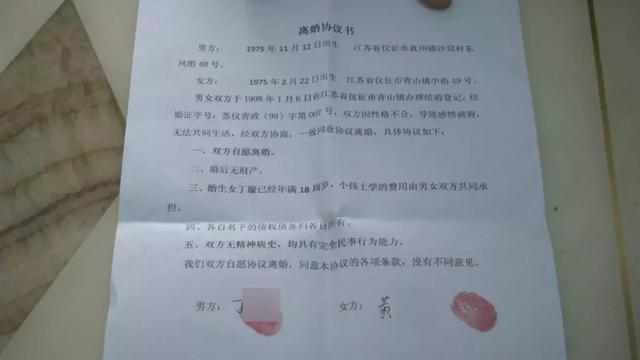 离婚协议书
男方： 1975年11月12日出生 江苏省仪征市真州镇沙窝村东
风组48号。
女方： 1975年2月22日出生 江苏省仪征市青山镇中街49号。
男女双方于1998年1月6日在江苏省仪征市青山镇办理结婚登记，结
婚证字号：苏仪青政（98）字第007号，双方因性格不合，导致感情破裂，
无法共同生活，经双方协商，一致同意协议离婚，具体协议如下：
一、双方自愿离婚。
二、婚后无财产。
三、婚生女丁朦已经年满18周岁，小孩上学的费用由男女双方共同承
担。
四、各自名下的债权债务归各自所有。
五、双方无精神病史，均具有完全民事行为能力。
我们双方自愿协议离婚，同意本协议的各项条款，没有不同意见。
男方：丁 女方：黄